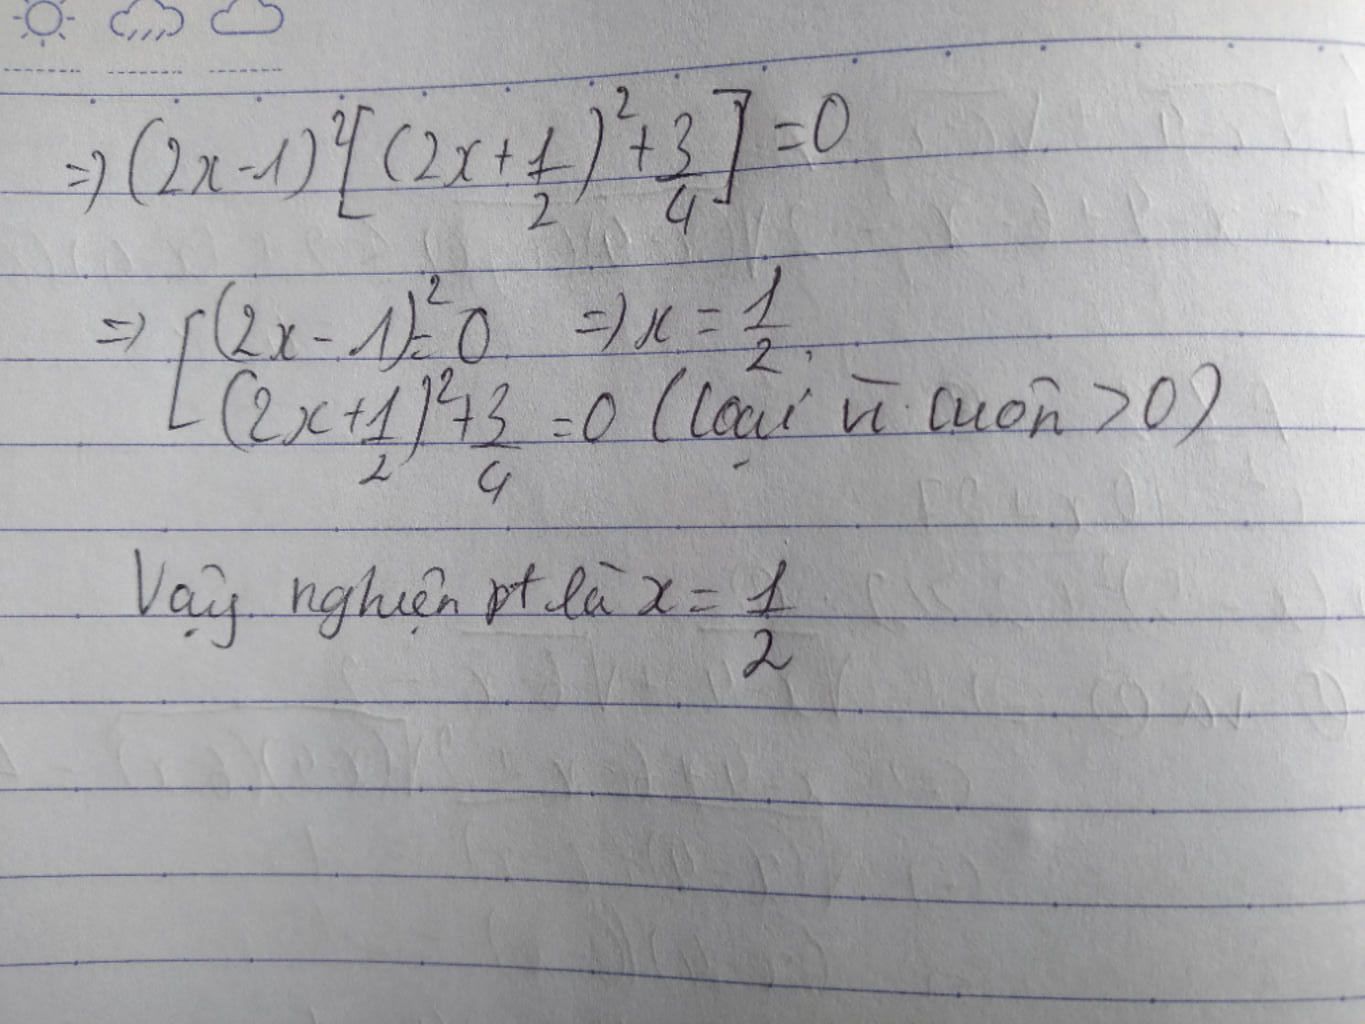 => (2x-1)²[(2x+1/2)²+3/4]=0
=> [(2x-1)²=0 => x=1/2.
(2x+1/2)²+3/4=0 (loại vì luôn >0)
Vậy nghiện pt là x=1/2